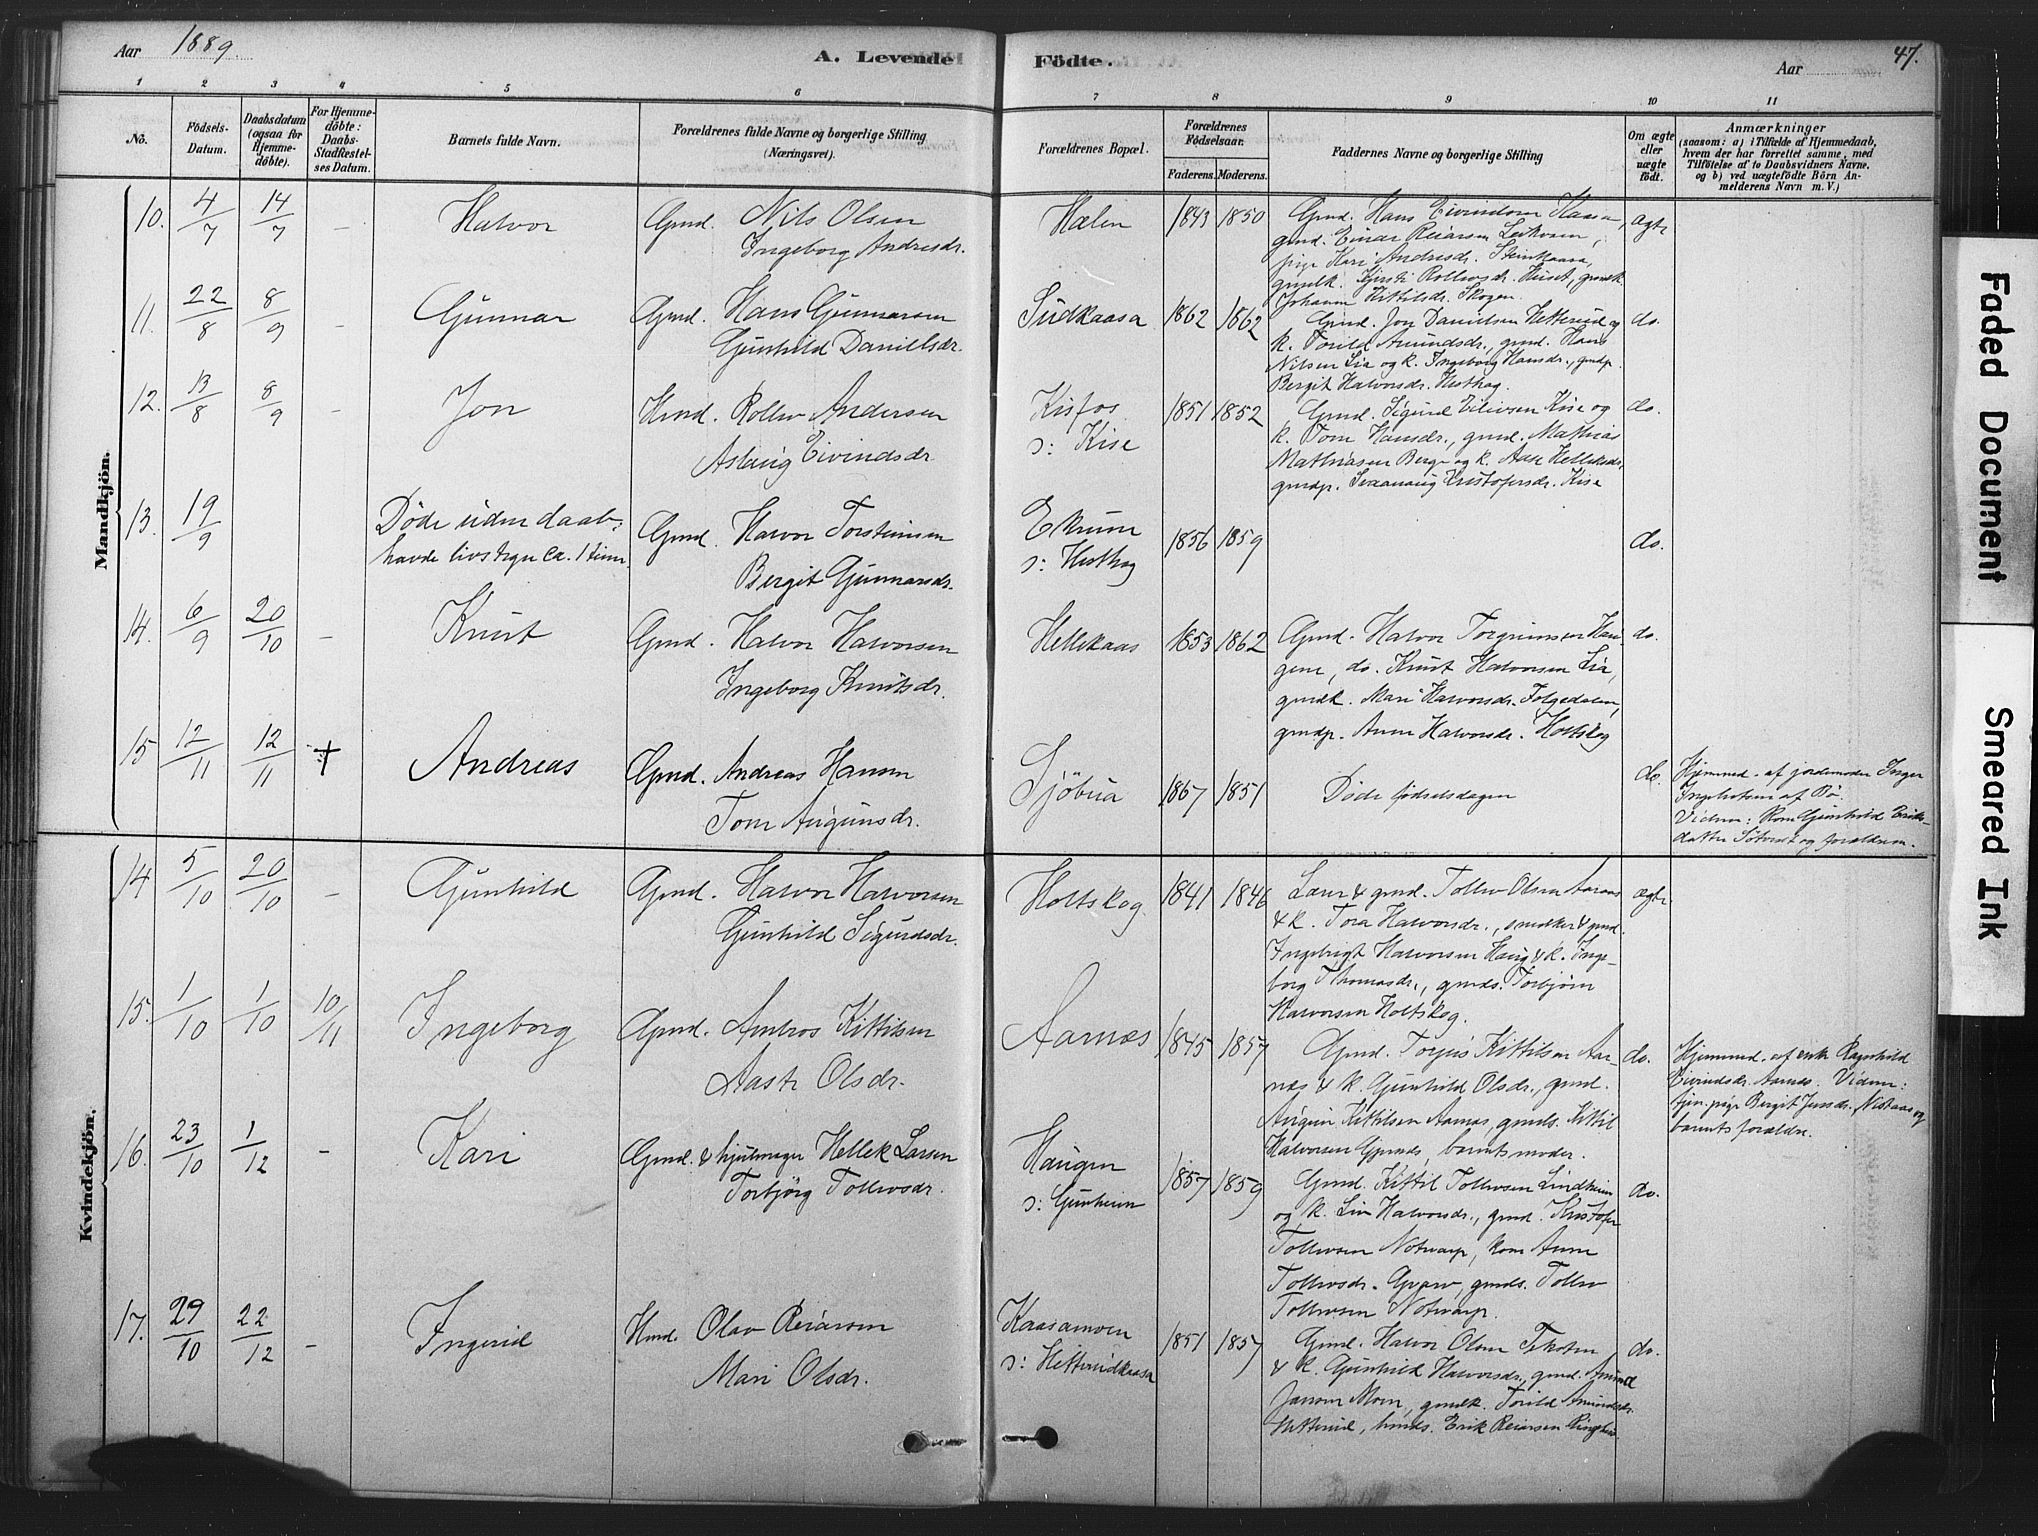 Aar 1889.
A. Levende Födte.
Aar
47.
1 2 3 4 5 6 7 8 9 10 11
No.
Födsels-Datum.
Daabsdatum (ogsaa for Hjemmedöbte).
For Hjemmedöbte: Daabs-Stadfæstelses Datum.
Barnets fulde Navn.
Forældrenes fulde Navne og borgerlige Stilling (Næringsvei).
Forældrenes Bopæl.
Forældrenes Födselsaar.
Faderens. Moderens.
Faddernes Navne og borgerlige Stilling
Om ægte eller uægte födt.
Anmærkninger
(saasom: a) i Tilfælde af Hjemmedaab,
hvem der har forrettet samme, med
Tilföielse af to Daabsvidners Navne,
og b) ved uægtefödte Börn Anmelderens Navn m. V.)
Mandkjön.
10. 4/7 14/7 - Halvor
Gmd. Nils Olsen
Ingeborg Andresdr.
Hælen 1843 1850
Gmd. Hans Eivindsen Kaasa,
gmd. Einar Reiarsen Leikvam,
pige Kari Andresdr. Steinkaasa,
gmdk. Kjersti Rollevsdr. Huset, gmdk.
Johanne Kittilsdr. Skogen.
ægte
11. 22/8 8/9 - Gunnar
Gmd. Hans Gunnarsen
Gunhild Danielsdr.
Sudkaasa 1862 1862
Gmd. Jon Danielsen Hetterud og
k. Torild Amundsdr., gmd. Hans
Nilsen Lia og k. Ingeborg Hansdr., gmdp.
Bergit Halvorsdr. Hesthag.
do.
12. 13/8 8/9 - Jon
Hmd. Rollev Andersen
Aslaug Eivindsdr.
Kisfos
ɔ: Kise
1851 1852
Gmd. Sigurd Eilivsen Kise og
k. Tone Hansdr., gmd. Mathias
Mathiasen Berge og k. Aase Helleksdr.
gmdp. Svanaug Kristofersdr. Kise
do.
13. 19/9
Døde uden daab,
havde livstegn ca. 1 time
Gmd. Halvor Torsteinsen
Bergit Gunnarsdr.
Ekrune
ɔ: Hesthag
1856 1859
do.
14. 6/9 20/10 - Knut
Gmd. Halvor Halvorsen
Ingeborg Knutsdr.
Hellekaas 1853 1862
Gmd. Halvor Torgrimsen Hau-
gene, do. Knut Halvorsen Lia,
gmdk. Mari Halvorsdr. Folgedalen,
gmdp. Anne Halvorsdr. Holtskog
do.
15 12/11 12/11 + Andreas
Gmd. Andreas Hansen
Tone Augunsdr.
Sjöbua 1867 1851
Døde fødselsdagen
do.
Hjemmed. af jordemoder Inger
Ingebretsen af Bø.
Vidner: Kone Gunhild Eriks-
datter Søtvedt og forældrene.
Kvindekjön.
14 5/10 20/10 - Gunhild
Gmd. Halvor Halvorsen
Gunhild Sigurdsdr.
Holtskog 1841 1846
Lærer & gmd. Tollev Olsen Aarnes
& k. Tora Halvorsdr., snedker & gmd.
Ingebrigt Halvorsen Haug & k. Inge-
borg Thomasdr., gmds. Torbjørn
Halvorsen Holtskog.
ægte
15. 1/10 1/10 10/11 Ingeborg
Gmd. Ambros Kittilsen
Aaste Olsdr.
Aarnæs 1845 1857
Gmd. Torjus Kittilsen Aar-
næs & k. Gunhild Olsdr., gmd.
Augun Kittilsen Aarnæs, gmds. Kittil
Halvorsen, barnets moder.
do.
Hjemmed. af enke Ragnhild
Eivindsdr. Aarnæs. Vidner:
tjen.pige Bergit Jensdr. Nistaas og
barnets forældre.
16. 23/10 1/12 - Kari
Gmd. & hjulmager Hellek Larsen
Torbjørg Tollevsdr.
Haugen
ɔ: Gunheim
1857 1859
Gmd. Kittil Tollevsen Lindheim
og k. Liv Halvorsdr., gmd. Kristofer
Tollevsen Notvarp, kone Anne
Tollevsdr. Gvarv, gmds. Tollev
Tollevsen Notvarp.
do.
17. 29/10 22/12 - Ingerid
Hmd. Olav Reiarsen
Mari Olsdr.
Kaasamoen
ɔ: Hetterudkaasa
1851 1857
Gmd. Halvor Olsen Tskoten
& k. Gunhild Halvorsdr., gmd. Amund
Jansen Moen, gmdk. Torild Amundsdr.
Hetterud, hmds. Erik Reiarsen
do.
Faded Document
Smeared Ink